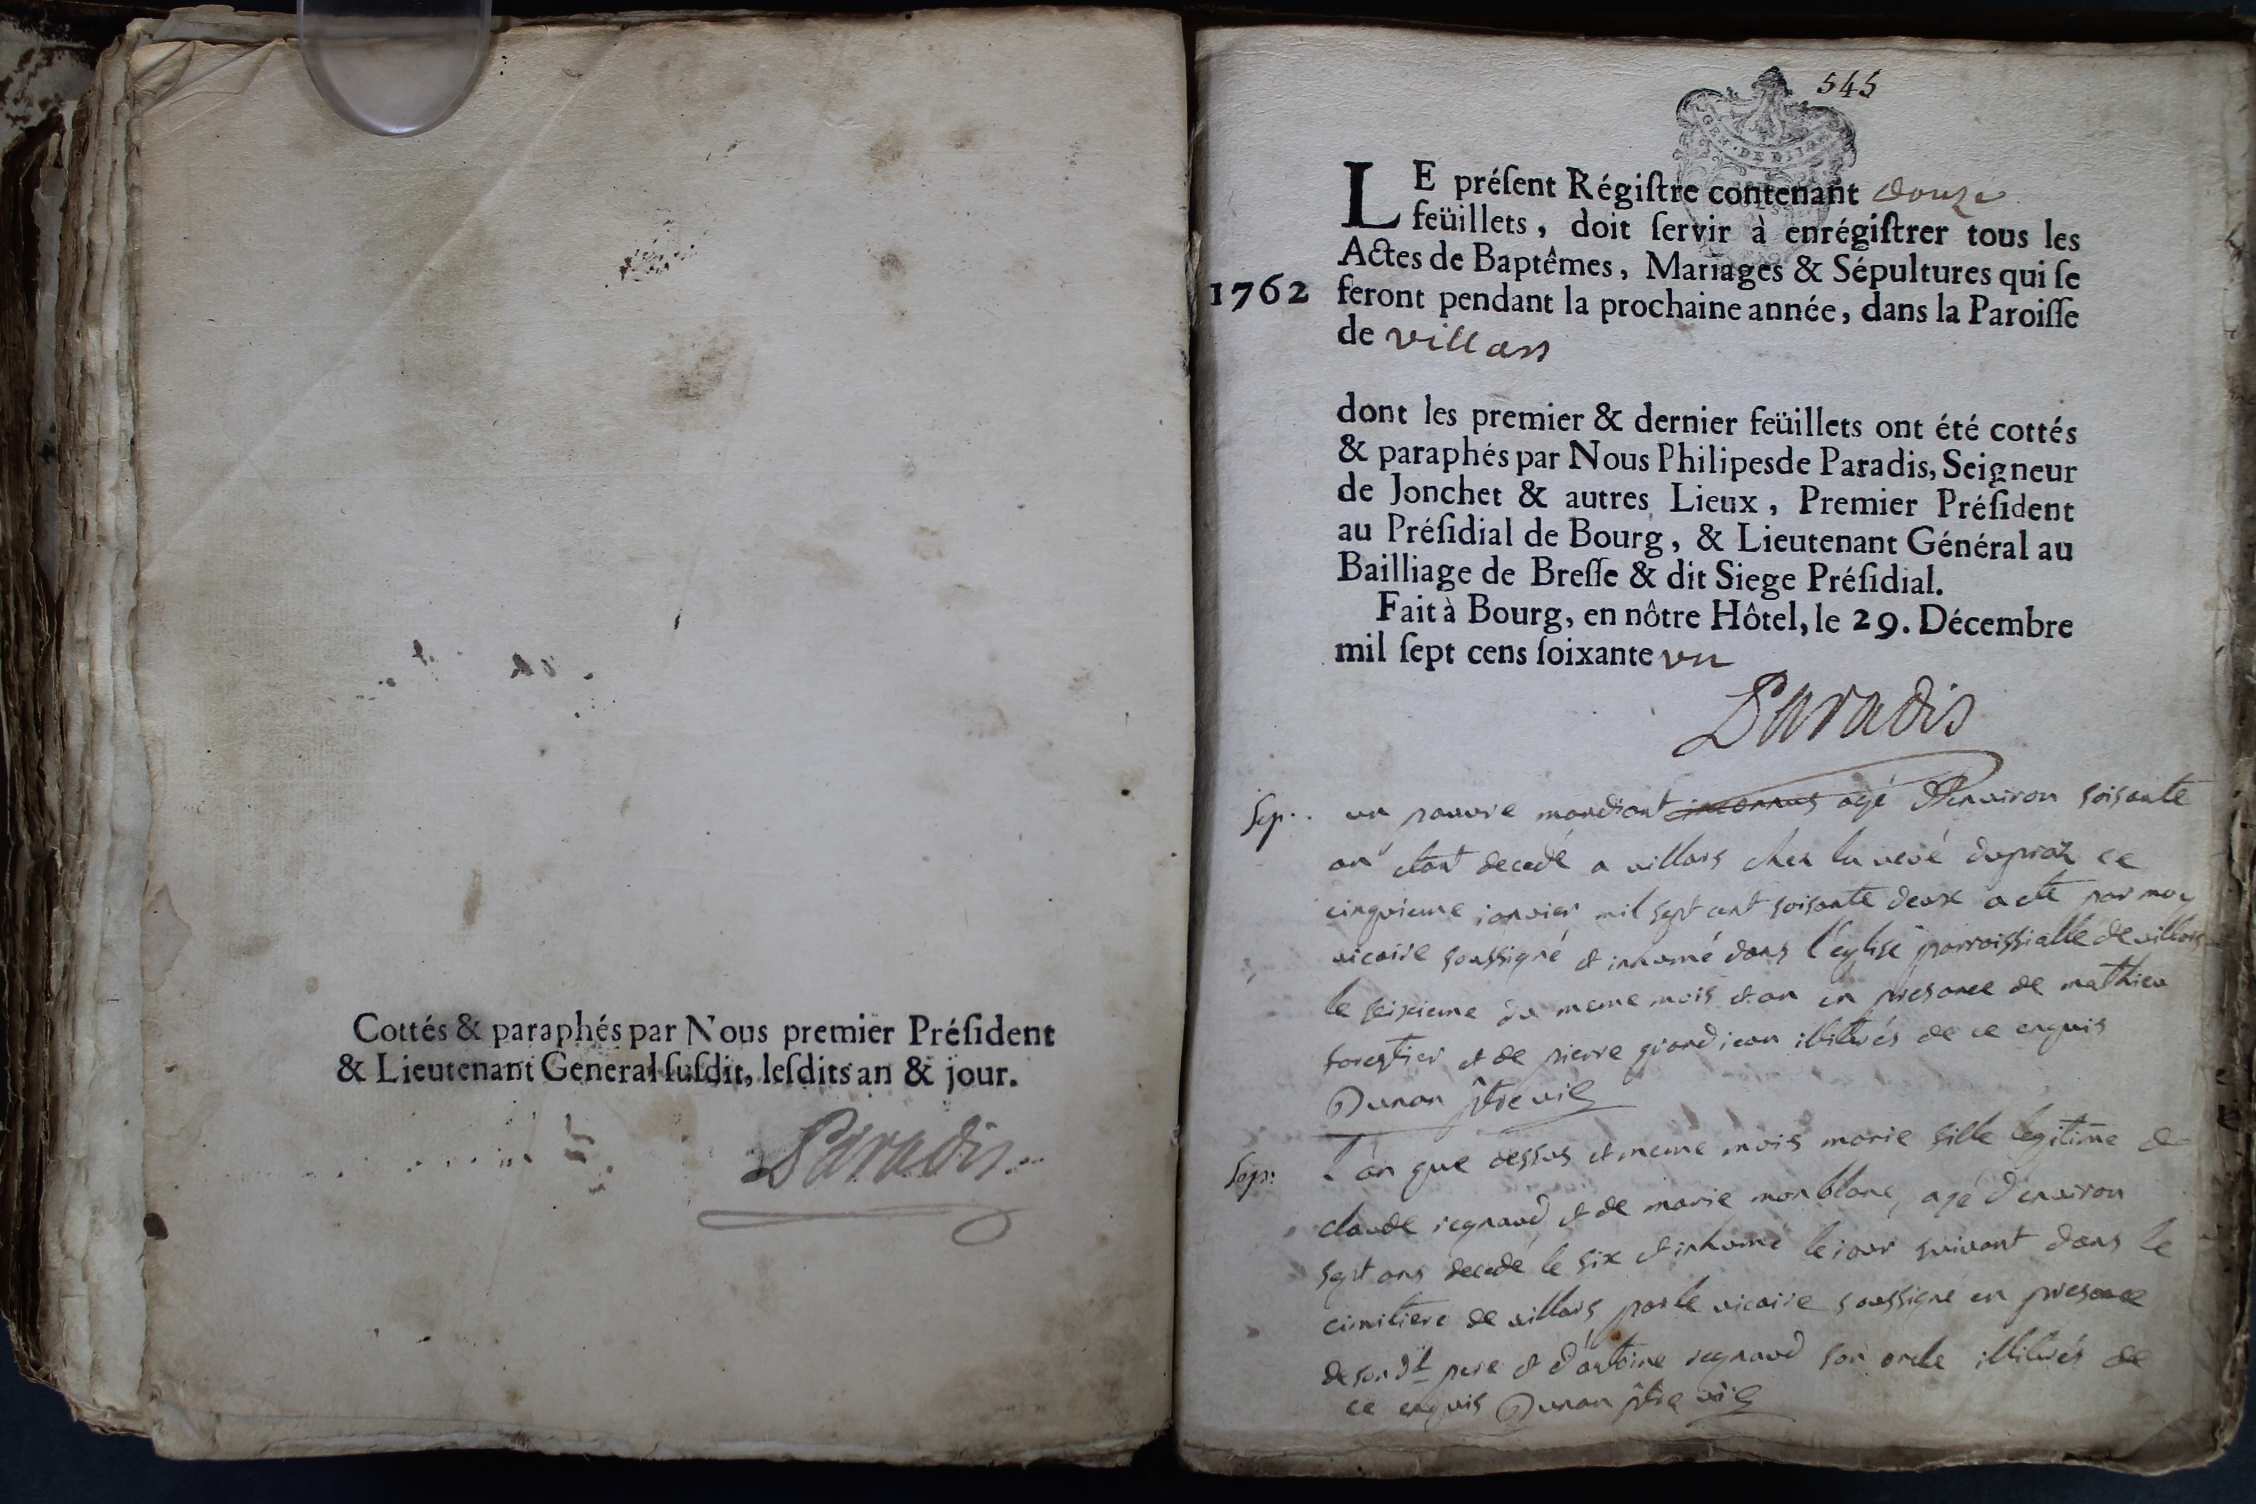 Cottés & paraphés par Nous premier Préſident
& Lieutenant General ſuſdit, leſdits an & jour.
Paradis
545
GEN. DE DIJON
LE préſent Régiſtre contenant douze
feüillets, doit ſervir à enrégiſtrer tous les
Actes de Baptêmes, Mariages & Sépultures qui ſe
1762 feront pendant la prochaine année, dans la Paroiſſe
de villars
dont les premier & dernier feüillets ont été cottés
& paraphés par Nous Philipes de Paradis, Seigneur
de Jonchet & autres Lieux, Premier Préſident
au Préſidial de Bourg, & Lieutenant Général au
Bailliage de Breſſe & dit Siege Préſidial.
Fait à Bourg, en nôtre Hôtel, le 29. Décembre
mil ſept cens ſoixante un
Paradis
Sep. un pauvre mandiant inconnus agé d'environ soisante
an etant decedé a villars chez la veve dupraz ce
cinquieme janvier mil sept cent soisante deux a ete par moy
vicaire soussigné et inhumé dans l'eglise parroissialle de villars
le seixieme du meme mois et an en presance de mathieu
forestier et de pierre grandjean illiterés de ce enquis
Dunan ptre vic
Sep. l'an que dessus et meme mois marie fille legitime de
claude regnaud et de marie monblanc, agé d'environ
sept ans decedé le six et inhumé le jour suivant dans le
cimitiere de villars par le vicaire soussigné en presance
de son dt pere et d'antoine regnaud son oncle illiterés de
ce enquis Dunan ptre vic